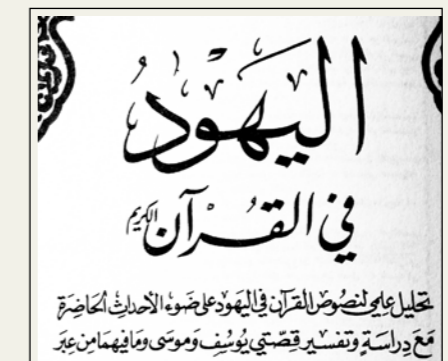 اليَهوْدُ
في القُرآن الكريم
تحليل علمي لنصُوص القرآن في اليَهود على ضَوء الأحداث الحَاضِرَة
مَع دراسَة وتفسير قصّتي يُوسُف وَمُوسَى وَمَا فيهمَا من عِبَر